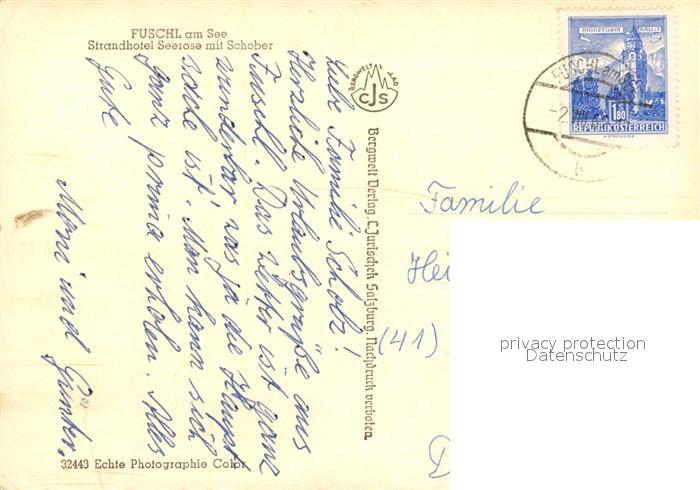 FUSCHL am See
Strandhotel Seerose mit Schober
Liebe Familie Scholz!
Herzliche Urlaubsgrüße aus
Fuschl. Das Wetter ist ganz
wunderbar was ja die Haupt
sache ist. Man kann sich
ganz prima erholen. Alles
Gute
Moni und Günter.
32443 Echte Photographie Color
BERGWELT VERLAG
CJS
Bergwelt Verlag, C. Jurischek Salzburg. Nachdruck verboten
MÜNZTURM HALL I. T.
1.80
REPUBLIK ÖSTERREICH
H. STROHOFER
FUSCHL am
b
Familie
Hei
(41)
D
privacy protection
Datenschutz